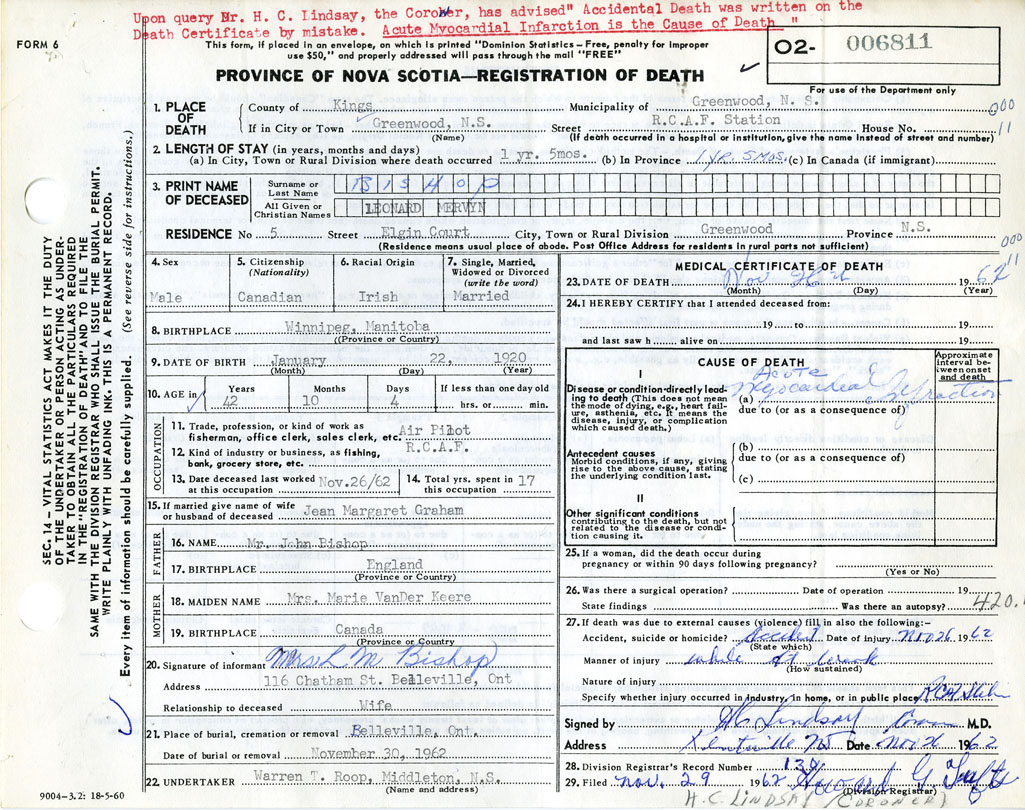 Upon query Mr. H. C. Lindsay, the Coroner, has advised" Accidental Death was written on the
Death Certificate by mistake. Acute Myocardial Infarction is the Cause of Death "
FORM 6
This form, if placed in an envelope, on which is printed "Dominion Statistics – Free, penalty for improper
use $50," and properly addressed will pass through the mail "FREE"
O2- 006811
For use of the Department only
PROVINCE OF NOVA SCOTIA—REGISTRATION OF DEATH
1. PLACE OF DEATH
County of Kings Municipality of Greenwood, N. S.
000
If in City or Town Greenwood, N.S. Street R.C.A.F. Station House No.
11
(Name) (If death occurred in a hospital or institution, give the name instead of street and number)
2. LENGTH OF STAY (in years, months and days)
(a) In City, Town or Rural Division where death occurred 1 yr. 5mos. (b) In Province 1 yr. 5 mos. (c) In Canada (if immigrant)
3. PRINT NAME OF DECEASED
Surname or Last Name BISHOP
All Given or Christian Names LEONARD MERVYN
RESIDENCE No 5 Street Elgin Court City, Town or Rural Division Greenwood Province N.S.
(Residence means usual place of abode. Post Office Address for residents in rural parts not sufficient)
000
11
4. Sex
Male
5. Citizenship
(Nationality)
Canadian
6. Racial Origin
Irish
7. Single, Married,
Widowed or Divorced
(write the word)
Married
8. BIRTHPLACE Winnipeg, Manitoba
(Province or Country)
9. DATE OF BIRTH January 22, 1920
(Month) (Day) (Year)
10. AGE in
Years Months Days If less than one day old
42 10 4 hrs. or min.
OCCUPATION
11. Trade, profession, or kind of work as
fisherman, office clerk, sales clerk, etc. Air Pilot
12. Kind of industry or business, as fishing,
bank, grocery store, etc. R.C.A.F.
13. Date deceased last worked
at this occupation Nov.26/62
14. Total yrs. spent in
this occupation 17
15. If married give name of wife
or husband of deceased Jean Margaret Graham
FATHER
16. NAME Mr. John Bishop
17. BIRTHPLACE England
(Province or Country)
MOTHER
18. MAIDEN NAME Mrs. Marie VanDer Keere
19. BIRTHPLACE Canada
(Province or Country
20. Signature of informant Mrs L M Bishop
Address 116 Chatham St. Belleville, Ont
Relationship to deceased Wife
21. Place of burial, cremation or removal Belleville, Ont.
Date of burial or removal November 30, 1962
22. UNDERTAKER Warren T. Roop, Middleton, N.S.
(Name and address)
MEDICAL CERTIFICATE OF DEATH
23. DATE OF DEATH Nov 1962
(Month) (Day) (Year)
24. I HEREBY CERTIFY that I attended deceased from:
19 to 19
and last saw h alive on 19
CAUSE OF DEATH
Approximate
interval between
onset
and death
I
Disease or condition directly leading
to death (This does not mean
the mode of dying, e.g., heart failure,
asthenia, etc. It means the
disease, injury, or complication
which caused death.)
(a) Acute Myocardeal Infraction
due to (or as a consequence of)
Antecedent causes
Morbid conditions, if any, giving
rise to the above cause, stating
the underlying condition last.
(b)
due to (or as a consequence of)
(c)
II
Other significant conditions
contributing to the death, but not
related to the disease or condition
causing it.
25. If a woman, did the death occur during
pregnancy or within 90 days following pregnancy?
(Yes or No)
26. Was there a surgical operation? Date of operation 19
State findings Was there an autopsy?
420.
27. If death was due to external causes (violence) fill in also the following:–
Accident, suicide or homicide? Accident Date of injury Nov 26 1962
(State which)
Manner of injury while at work
(How sustained)
Nature of injury
Specify whether injury occurred in Industry, in home, or in public place
Signed by H C Lindsay M.D.
Address Kentville NS Date Nov 26 1962
28. Division Registrar's Record Number
29. Filed Nov. 29 1962 Howard G.
(Division Registrar)
H.C. LINDSAY (CORONER)
SEC. 14 – VITAL STATISTICS ACT MAKES IT THE DUTY
OF THE UNDERTAKER OR PERSON ACTING AS UNDERTAKER
TO OBTAIN ALL THE PARTICULARS REQUIRED
IN THE "REGISTRATION OF DEATH" AND TO FILE THE
SAME WITH THE DIVISION REGISTRAR WHO SHALL ISSUE THE BURIAL PERMIT.
WRITE PLAINLY WITH UNFADING INK. THIS IS A PERMANENT RECORD.
Every item of information should be carefully supplied. (See reverse side for instructions.)
9004-3.2: 18-5-60